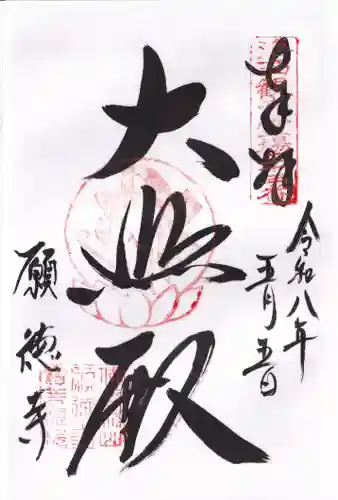 奉拝
令和八年
五月五日
大悲殿
願徳寺